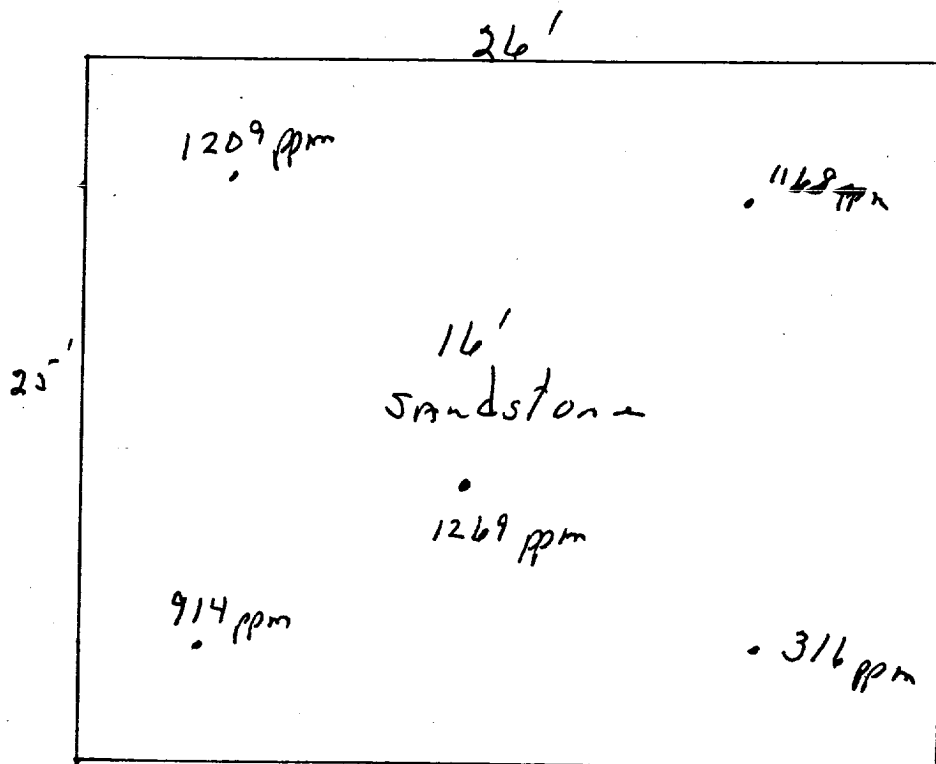 26'
1209 ppm
1168 ppm
25'
16'
Sandstone
1269 ppm
914 ppm
316 ppm